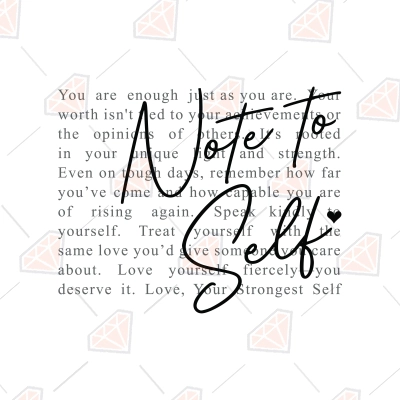 Note to
Self
You are enough just as you are. Your
worth isn't tied to your achievements or
the opinions of others. It's rooted
in your unique light and strength.
Even on tough days, remember how far
you've come and how capable you are
of rising again. Speak kindly to
yourself. Treat yourself with the
same love you'd give someone you care
about. Love yourself fiercely—you
deserve it. Love, Your Strongest Self